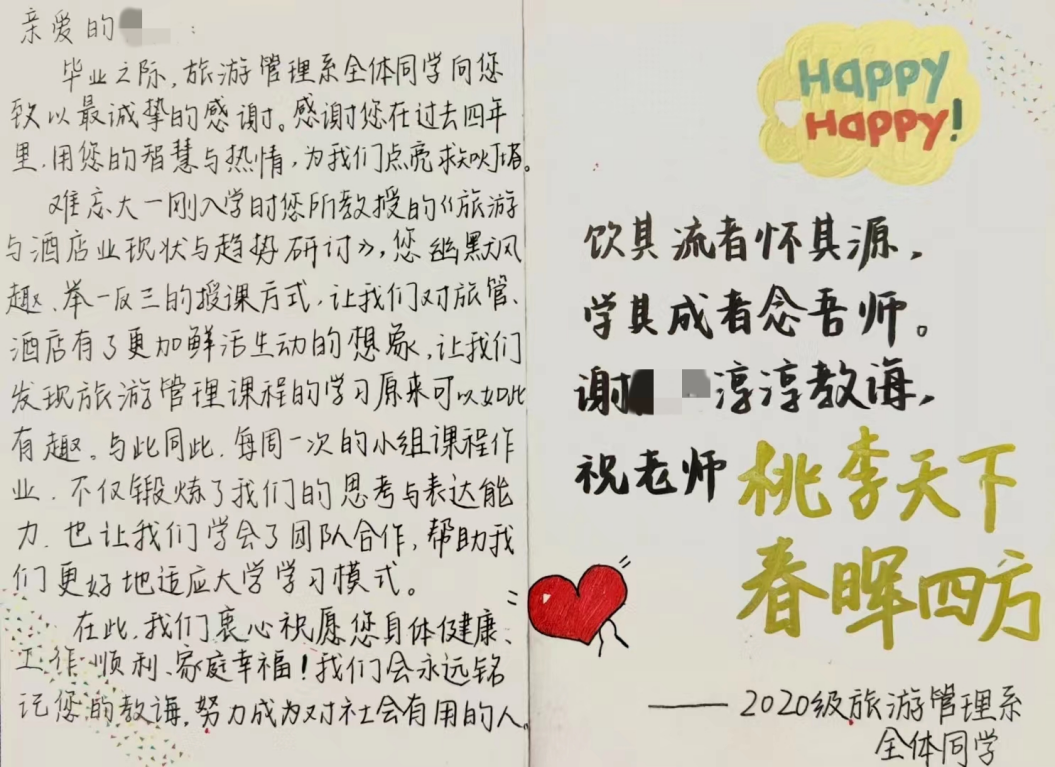 亲爱的 :
毕业之际,旅游管理系全体同学向您
致以最诚挚的感谢。感谢您在过去四年
里,用您的智慧与热情,为我们点亮求知灯塔。
难忘大一刚入学时您所教授的《旅游
与酒店业现状与趋势研讨》,您幽默风
趣、举一反三的授课方式,让我们对旅管、
酒店有了更加鲜活生动的想象,让我们
发现旅游管理课程的学习原来可以如此
有趣。与此同此,每周一次的小组课程作
业,不仅锻炼了我们的思考与表达能
力,也让我们学会了团队合作,帮助我
们更好地适应大学学习模式。
在此,我们衷心祝愿您身体健康、
工作顺利、家庭幸福!我们会永远铭
记您的教诲,努力成为对社会有用的人。
Happy
Happy!
饮其流者怀其源,
学其成者念吾师。
谢 淳淳教诲,
祝老师 桃李天下
春晖四方
——2020级旅游管理系
全体同学